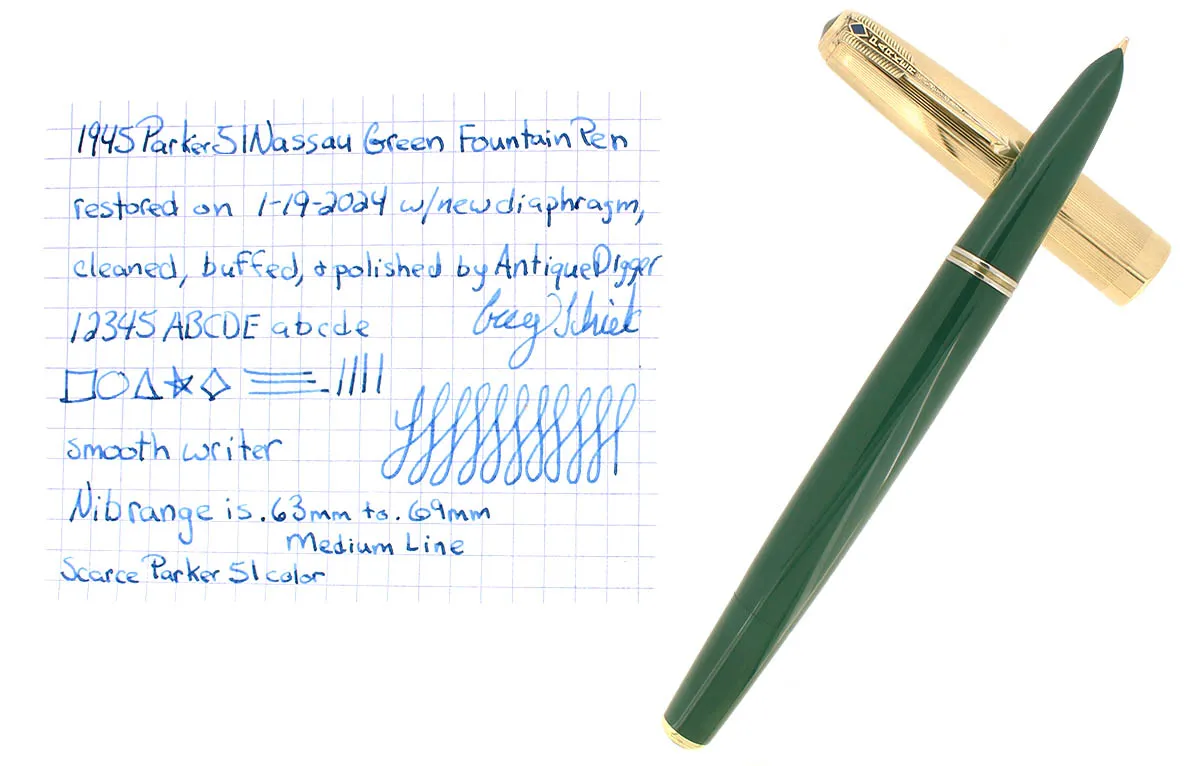 1945 Parker 51 Nassau Green Fountain Pen
restored on 1-19-2024 w/new diaphragm,
cleaned, buffed, & polished by AntiqueDigger
12345 ABCDE abcde
smooth writer
Nib range is .63mm to .69mm
Medium Line
Scarce Parker 51 color
PARKER